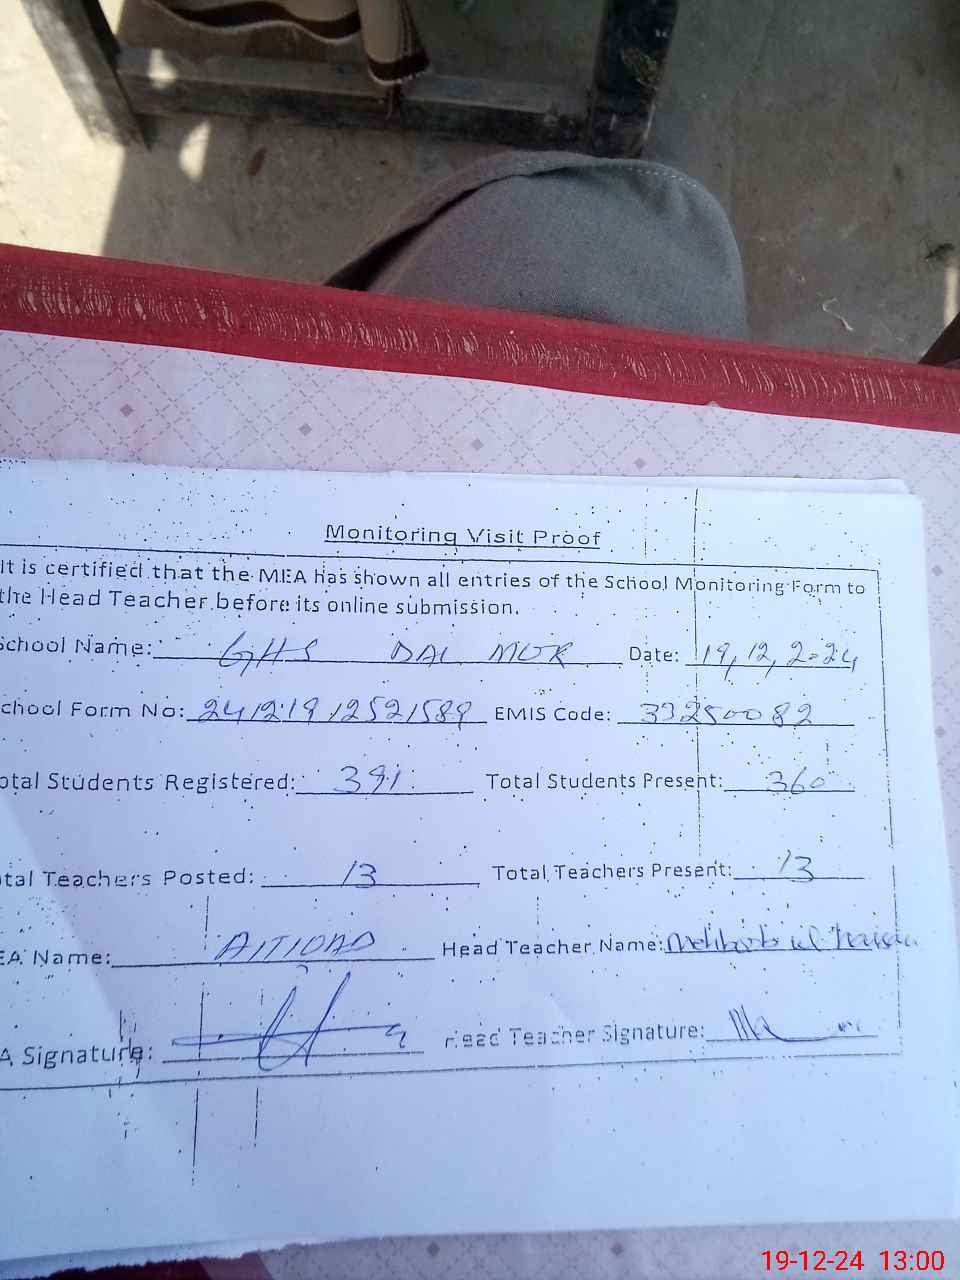 Monitoring Visit Proof
It is certified that the MEA has shown all entries of the School Monitoring Form to
the Head Teacher before its online submission.
School Name: GHS DAL MOR Date: 19,12,2024
chool Form No: 241219 12521589 EMIS Code: 33250082
otal Students Registered: 391 Total Students Present: 360
tal Teachers Posted: 13 Total Teachers Present: 13
EA Name: Head Teacher Name:
A Signature: Head Teacher Signature:
19-12-24 13:00